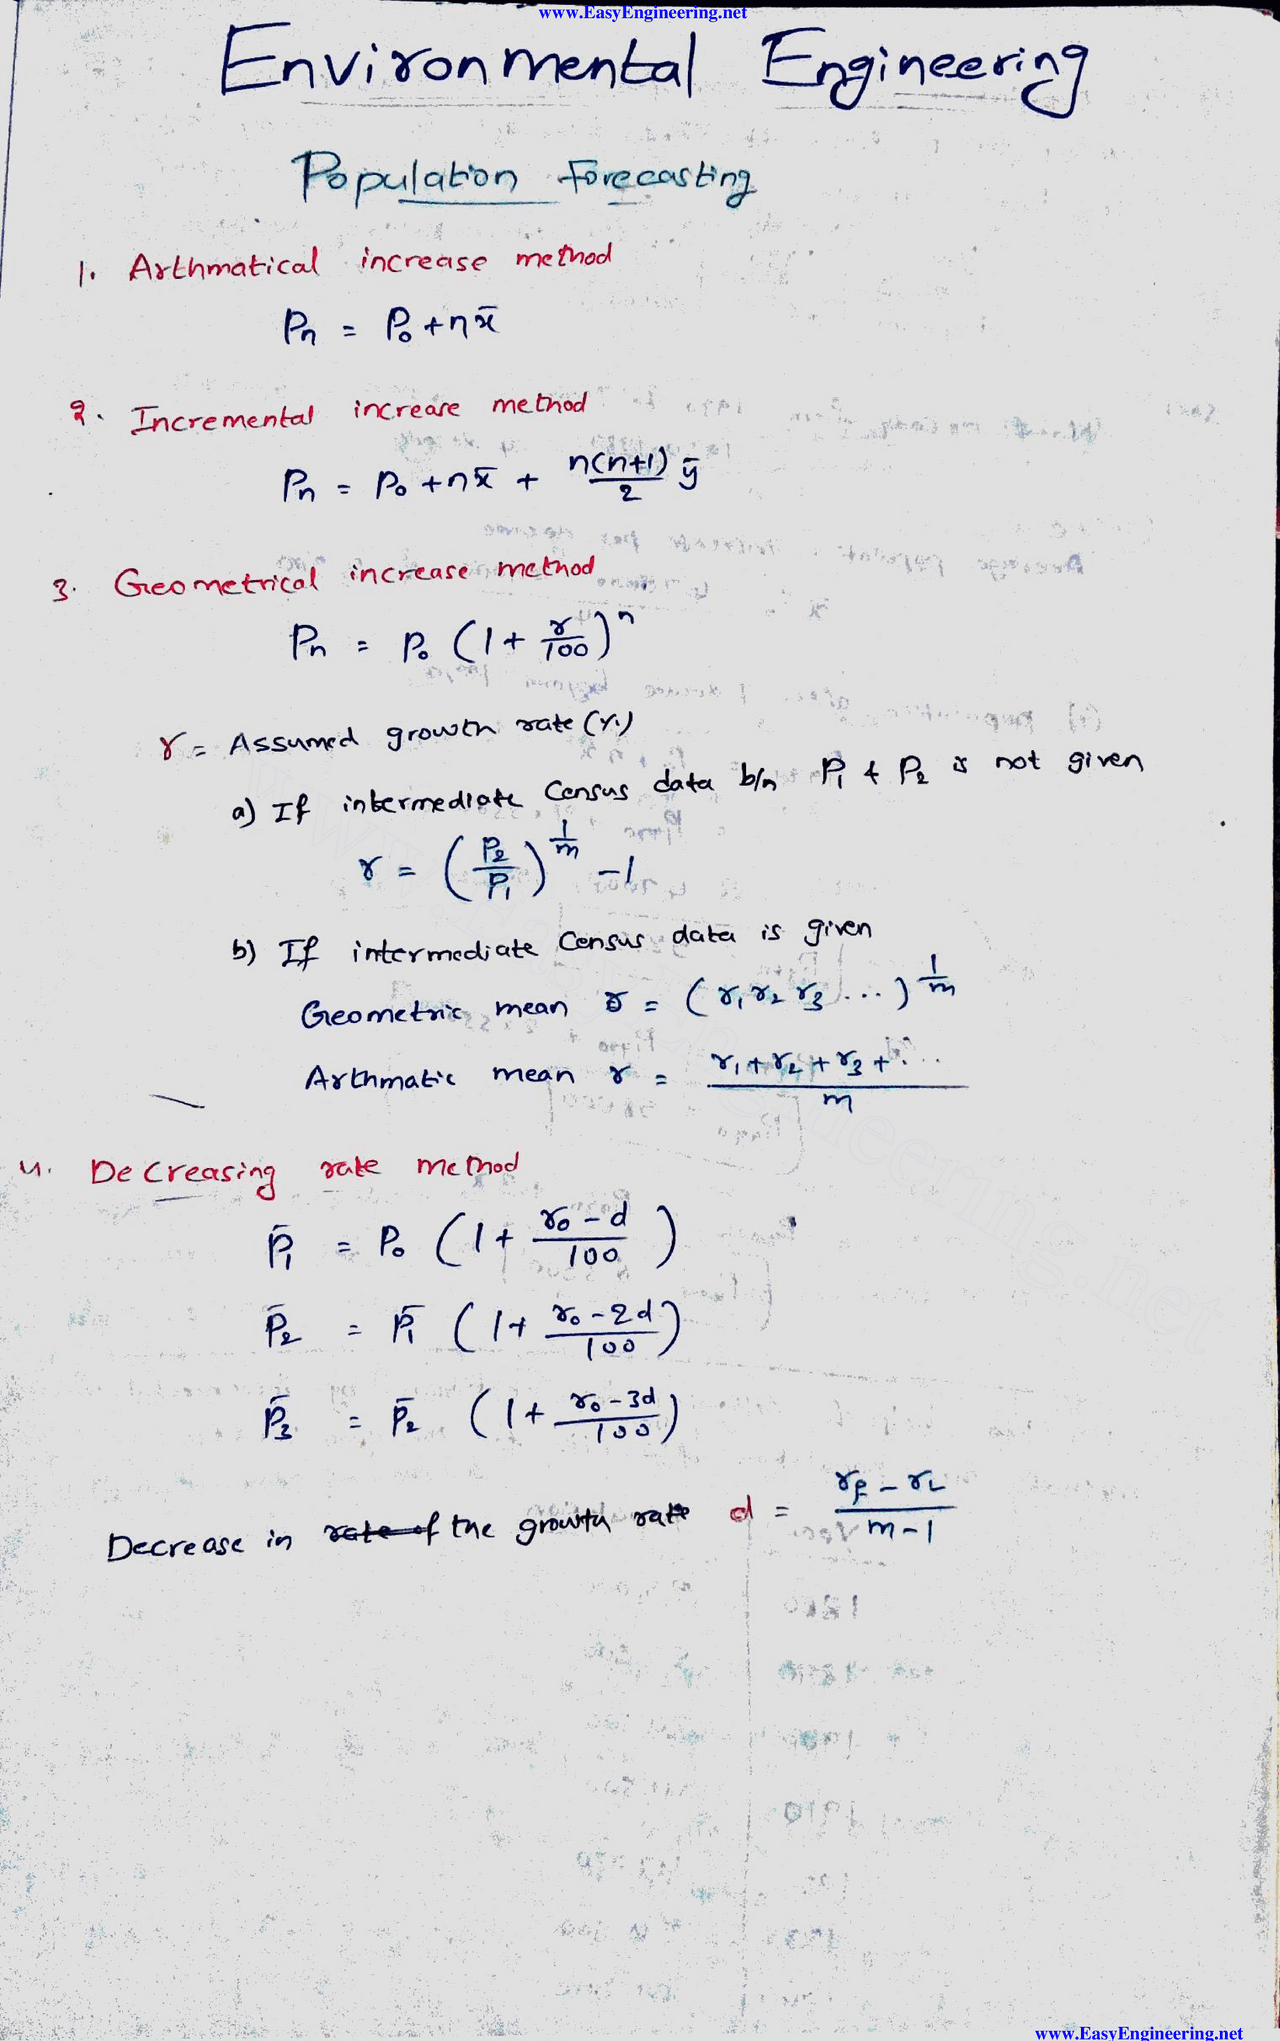 www.EasyEngineering.net
Environmental Engineering
Population Forecasting
1. Arthmatical increase method
Pn = P₀ + n x̄
2. Incremental increase method
Pn = P₀ + n x̄ + n(n+1)/2 ȳ
3. Geometrical increase method
Pn = P₀ (1 + r/100)ⁿ
r = Assumed growth rate (%)
a) If intermediate Census data b/n P₁ & P₂ is not given
r = (P₂/P₁)^(1/m) - 1
b) If intermediate Census data is given
Geometric mean r = (r₁ r₂ r₃ ...)^(1/m)
Arthmatic mean r = (r₁ + r₂ + r₃ + ...)/m
4. Decreasing rate method
P̄₁ = P₀ (1 + (r₀ - d)/100)
P̄₂ = P̄₁ (1 + (r₀ - 2d)/100)
P̄₃ = P̄₂ (1 + (r₀ - 3d)/100)
Decrease in rate of the growth rate d = (r_f - r_L)/(m - 1)
www.EasyEngineering.net